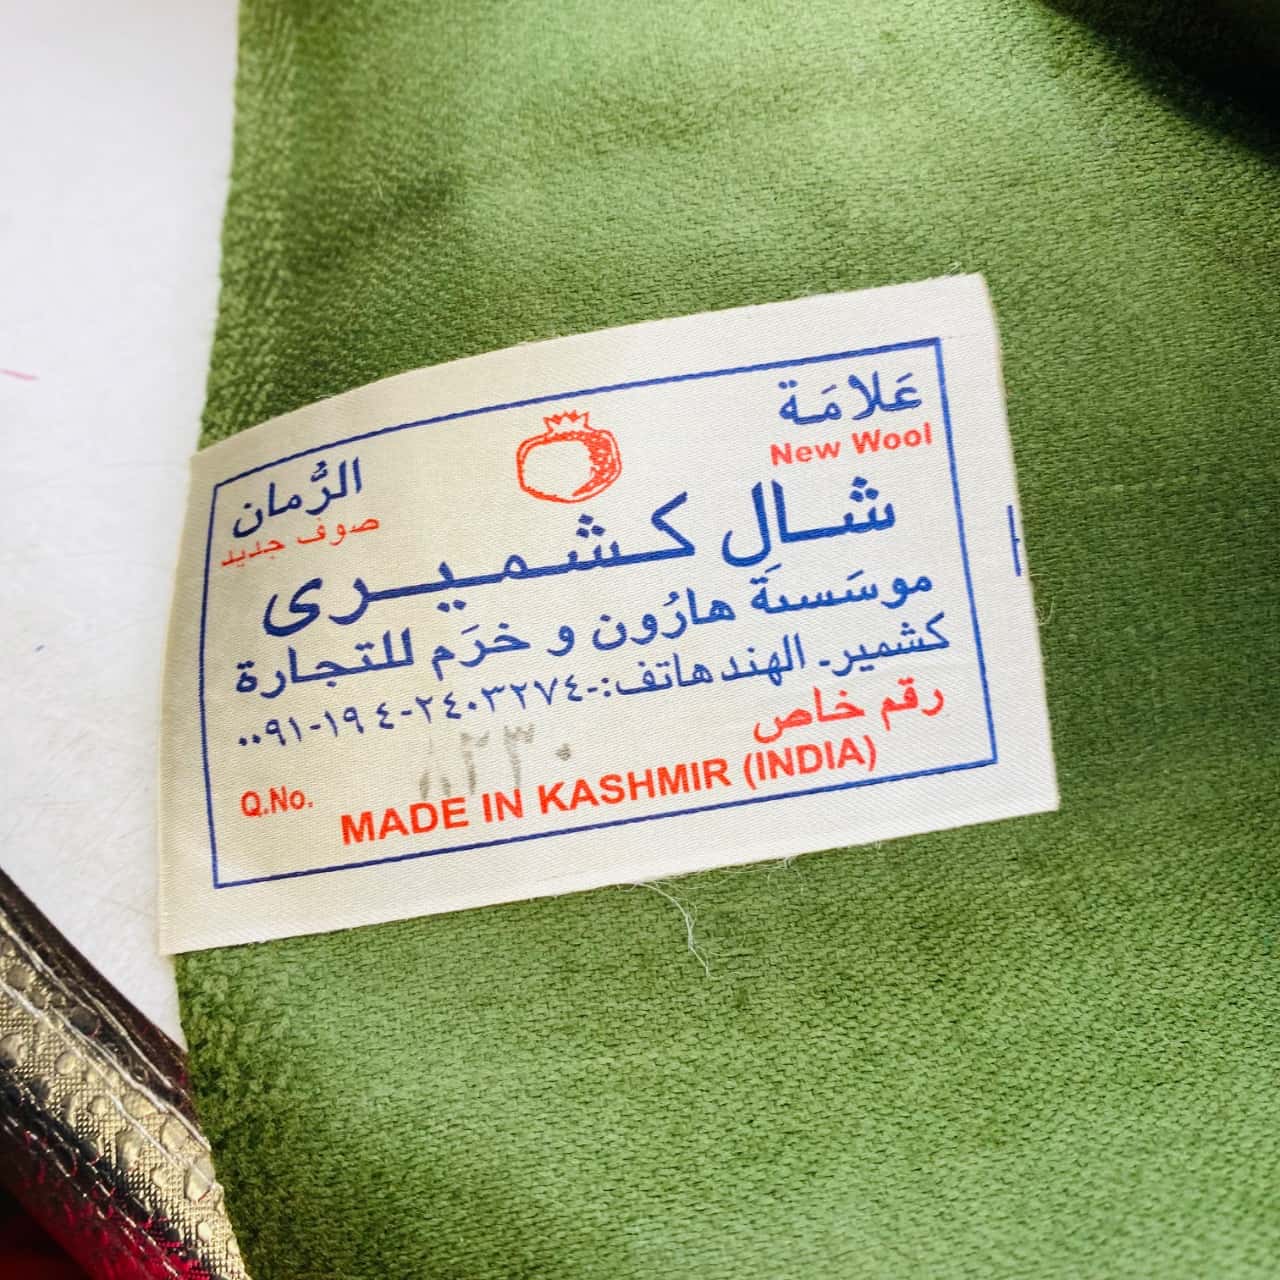 عَلامَة الرُّمان
New Wool صوف جديد
شال كشميرى
موسَسَة هارُون و خرَم للتجارة
كشمير۔ الهند هاتف:-٢٤٠٣٢٧٤-١٩٤-٠٠٩١
رقم خاص
Q.No.
MADE IN KASHMIR (INDIA)